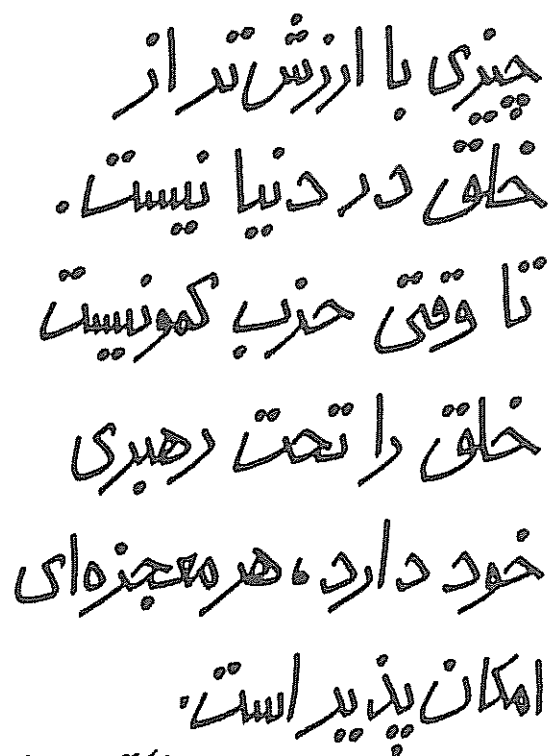 چیزی با ارزش‌تر از
خلق در دنیا نیست.
تا وقتی حزب کمونیست
خلق را تحت رهبری
خود دارد، هر معجزه‌ای
امکان پذیر است.